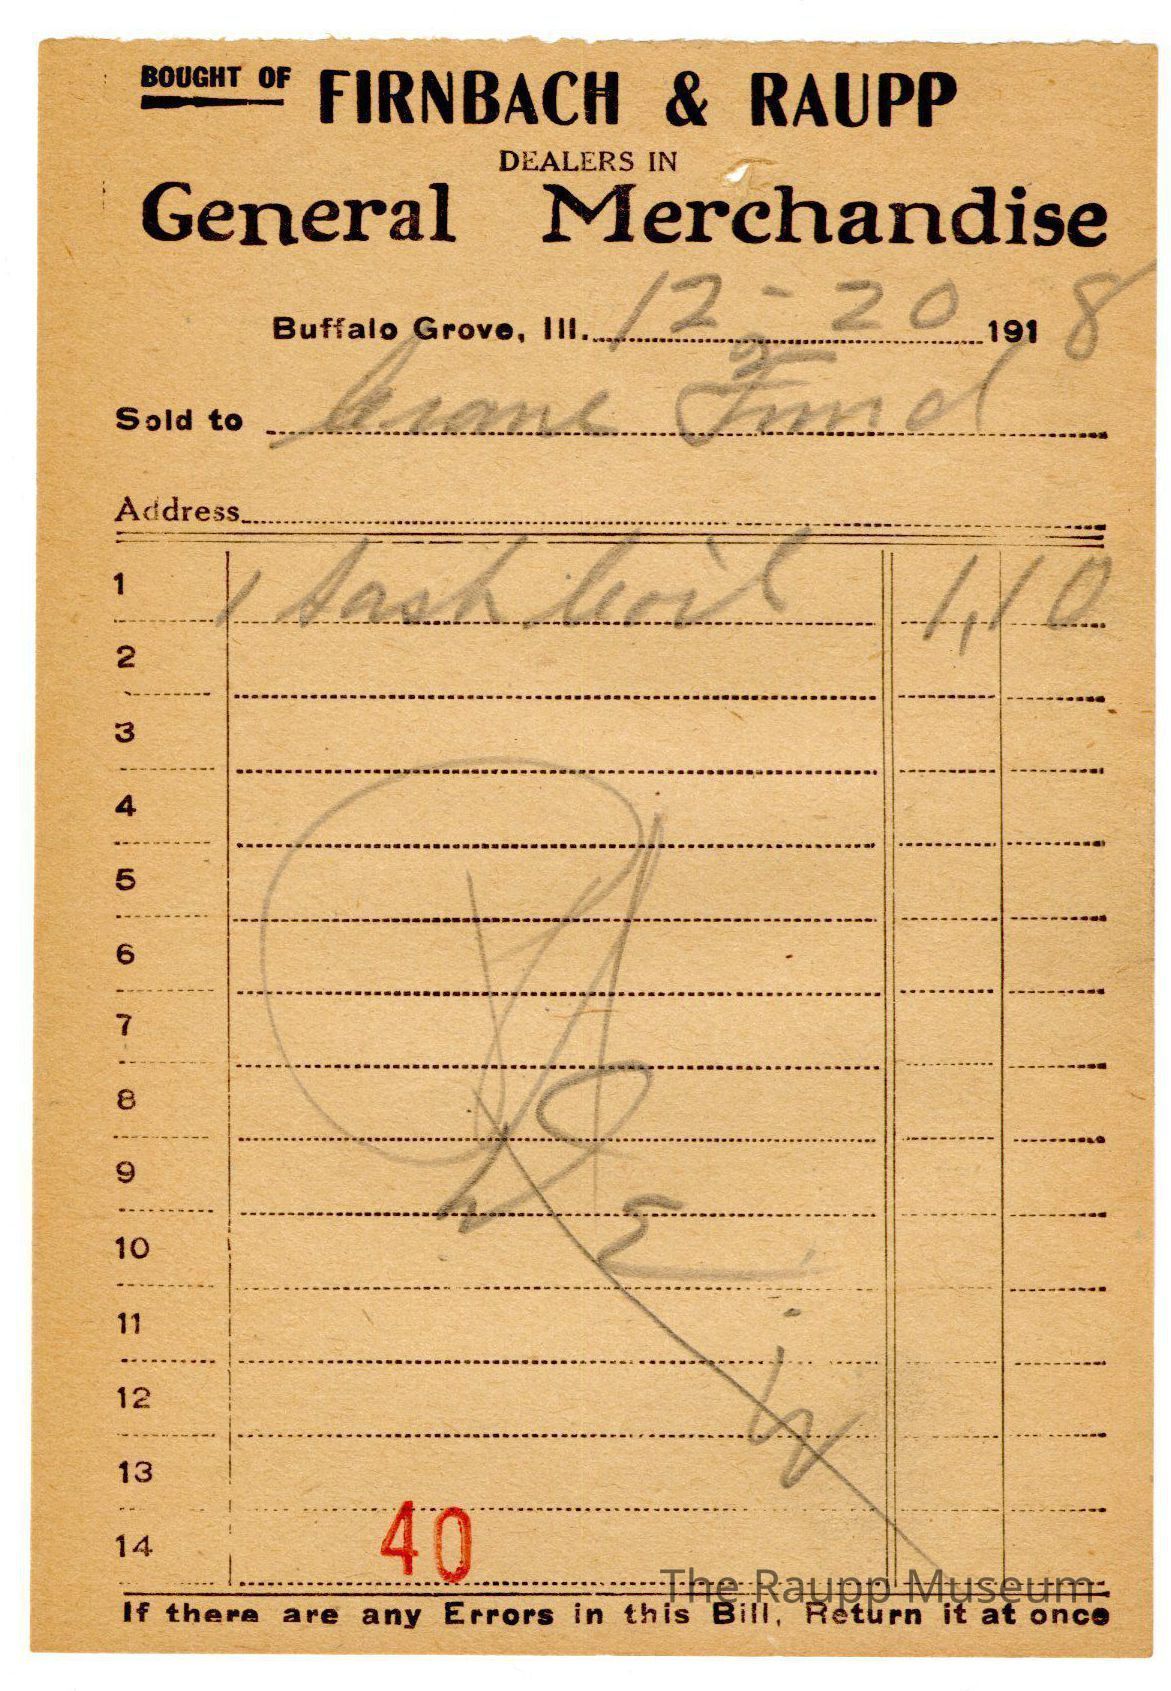 BOUGHT OF FIRNBACH & RAUPP
DEALERS IN
General Merchandise
Buffalo Grove, Ill. 12-20 1918
Sold to
Address
1 1 sash 1,10
2
3
4
5
6
7
8
9
10
11
12
13
14 40
The Raupp Museum
If there are any Errors in this Bill, Return it at once